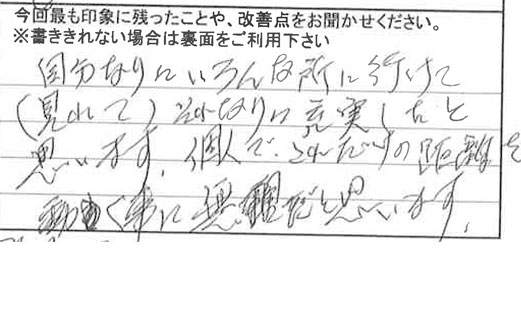 今回最も印象に残ったことや、改善点をお聞かせください。
※書ききれない場合は裏面をご利用下さい
自分なりにいろんな所に行けて
(見れて)それなりに充実したと
思います。個人で、これだけの距離を
動く事に無理だと思います。